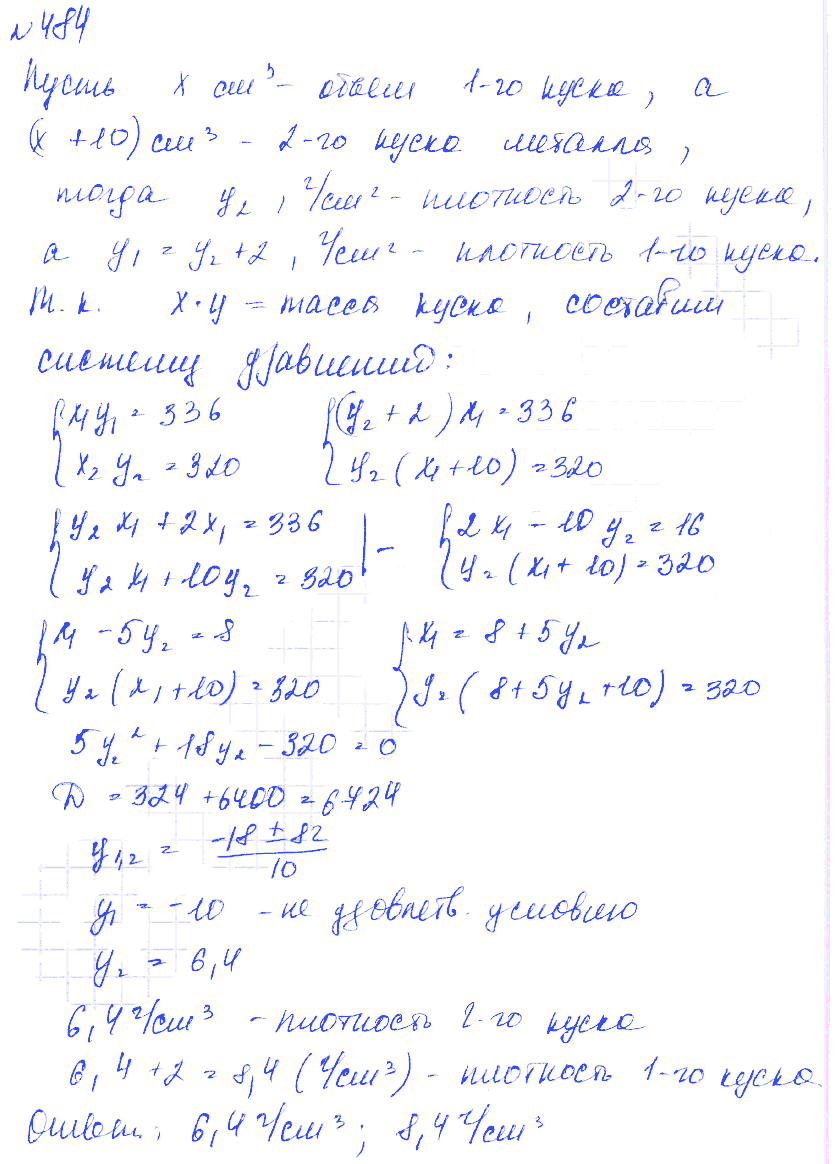 №484
Пусть x см³ – объем 1-го куска, а
(x + 10) см³ – 2-го куска металла,
тогда y₂, г/см² – плотность 2-го куска,
а y₁ = y₂ + 2, г/см² – плотность 1-го куска.
Т. к. x · y = масса куска, составим
систему уравнений:
{ x₁y₁ = 336 { (y₂ + 2) x₁ = 336
{ x₂ y₂ = 320 { y₂ (x₁ + 10) = 320
{ y₂ x₁ + 2x₁ = 336 | – { 2x₁ – 10 y₂ = 16
{ y₂ x₁ + 10y₂ = 320 | { y₂ (x₁ + 10) = 320
{ x₁ – 5y₂ = 8 { x₁ = 8 + 5y₂
{ y₂ (x₁ + 10) = 320 { y₂ (8 + 5y₂ + 10) = 320
5y₂² + 18y₂ – 320 = 0
D = 324 + 6400 = 6724
y₁,₂ = (–18 ± 82)/10
y₁ = –10 – не удовлетв. условию
y₂ = 6,4
6,4 г/см³ – плотность 2-го куска
6,4 + 2 = 8,4 (г/см³) – плотность 1-го куска.
Ответ: 6,4 г/см³; 8,4 г/см³